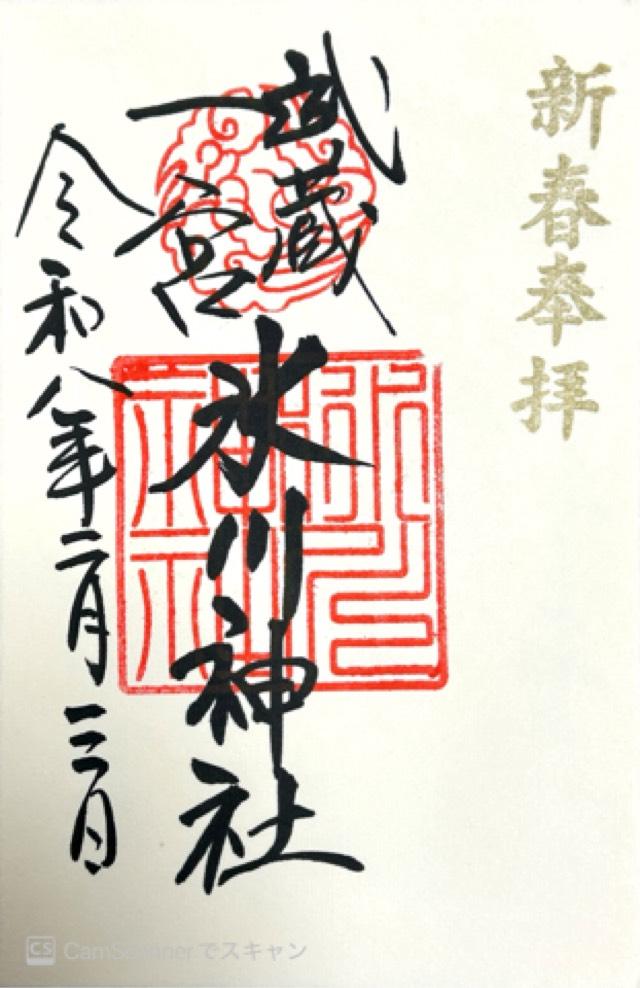 新春奉拝
武蔵
一宮
氷川神社
令和八年二月三日
CS CamScanner でスキャン